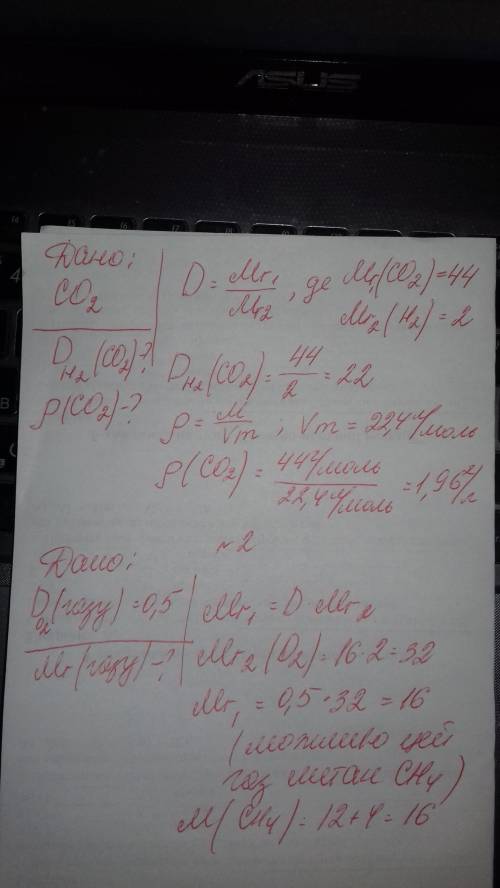 ASUS
Дано:
CO₂
D = Mr₁/Mr₂, де Mr₁(CO₂)=44
Mr₂(H₂)=2
D_H₂(CO₂)-?
ρ(CO₂)-?
D_H₂(CO₂)= 44/2 = 22
ρ = M/Vm ; Vm = 22,4 л/моль
ρ(CO₂) = 44 г/моль / 22,4 л/моль = 1,96 г/л
№2
Дано:
D_O₂(газу)=0,5
Mr(газу)-?
Mr₁ = D · Mr₂
Mr₂(O₂)=16·2=32
Mr₁ = 0,5·32 = 16
(можливо цей
газ метан CH₄)
M(CH₄)=12+4=16